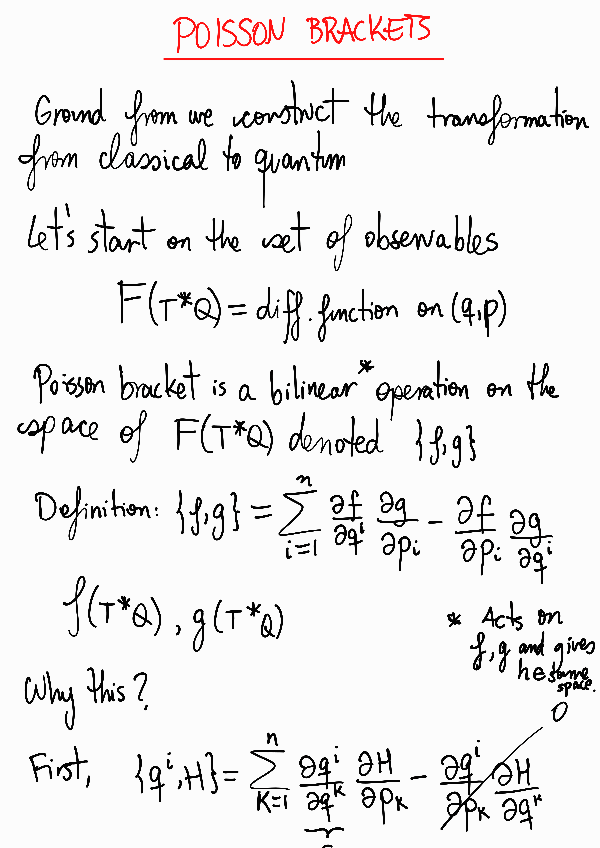 POISSON BRACKETS
Ground from we construct the transformation
from classical to quantum
Let's start on the set of observables
F(T*Q) = diff. function on (q,p)
Poisson bracket is a bilinear* operation on the
space of F(T*Q) denoted {f,g}
Definition: {f,g} = ∑_{i=1}^{n} ∂f/∂q^i ∂g/∂p_i − ∂f/∂p_i ∂g/∂q^i
f(T*Q), g(T*Q)
* Acts on
f,g and gives
he same
space.
Why this?
0
First, {q^i,H} = ∑_{k=1}^{n} ∂q^i/∂q^k ∂H/∂p_k − ∂q^i/∂p_k ∂H/∂q^k